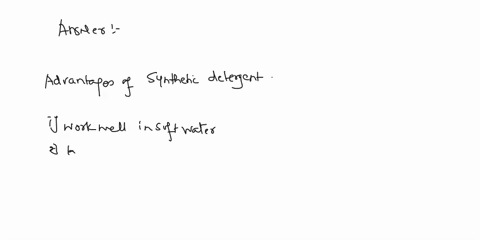 Answer:-
Advantages of Synthetic detergent.
1) work well in soft water
2) h